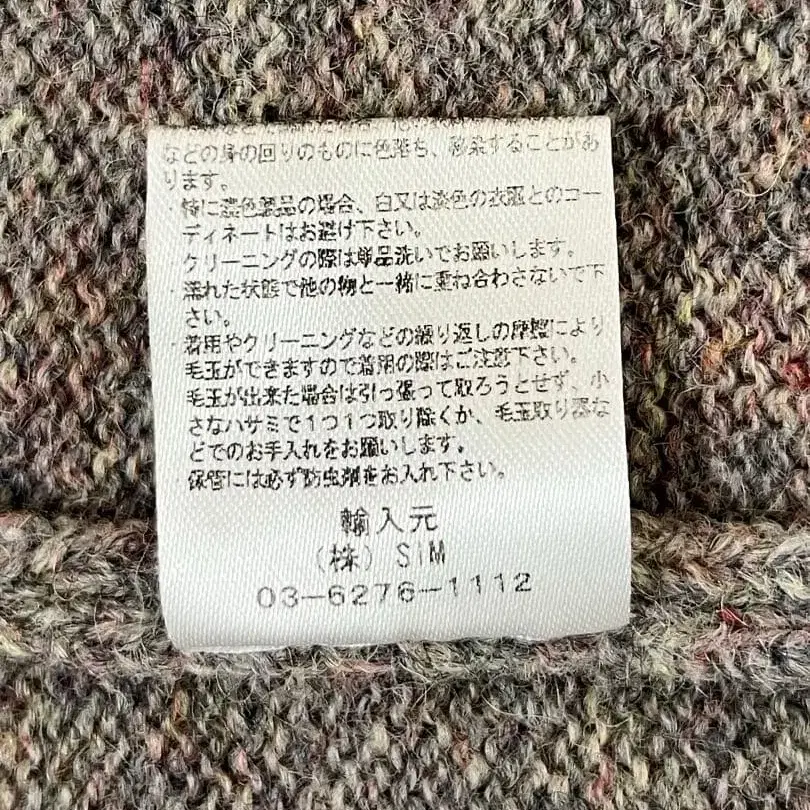 などの身の回りのものに色落ち、移染することがあ
ります。
特に濃色製品の場合、白又は淡色の衣服とのコー
ディネートはお避け下さい。
クリーニングの際は単品洗いでお願いします。
・濡れた状態で他の物と一緒に重ね合わさないで下
さい。
・着用やクリーニングなどの繰り返しの摩擦により
毛玉ができますので着用の際はご注意下さい。
毛玉が出来た場合は引っ張って取ろうとせず、小
さなハサミで1つ1つ取り除くか、毛玉取り器な
どでのお手入れをお願いします。
・保管には必ず防虫剤をお入れ下さい。
輸入元
(株) SIM
03-6276-1112